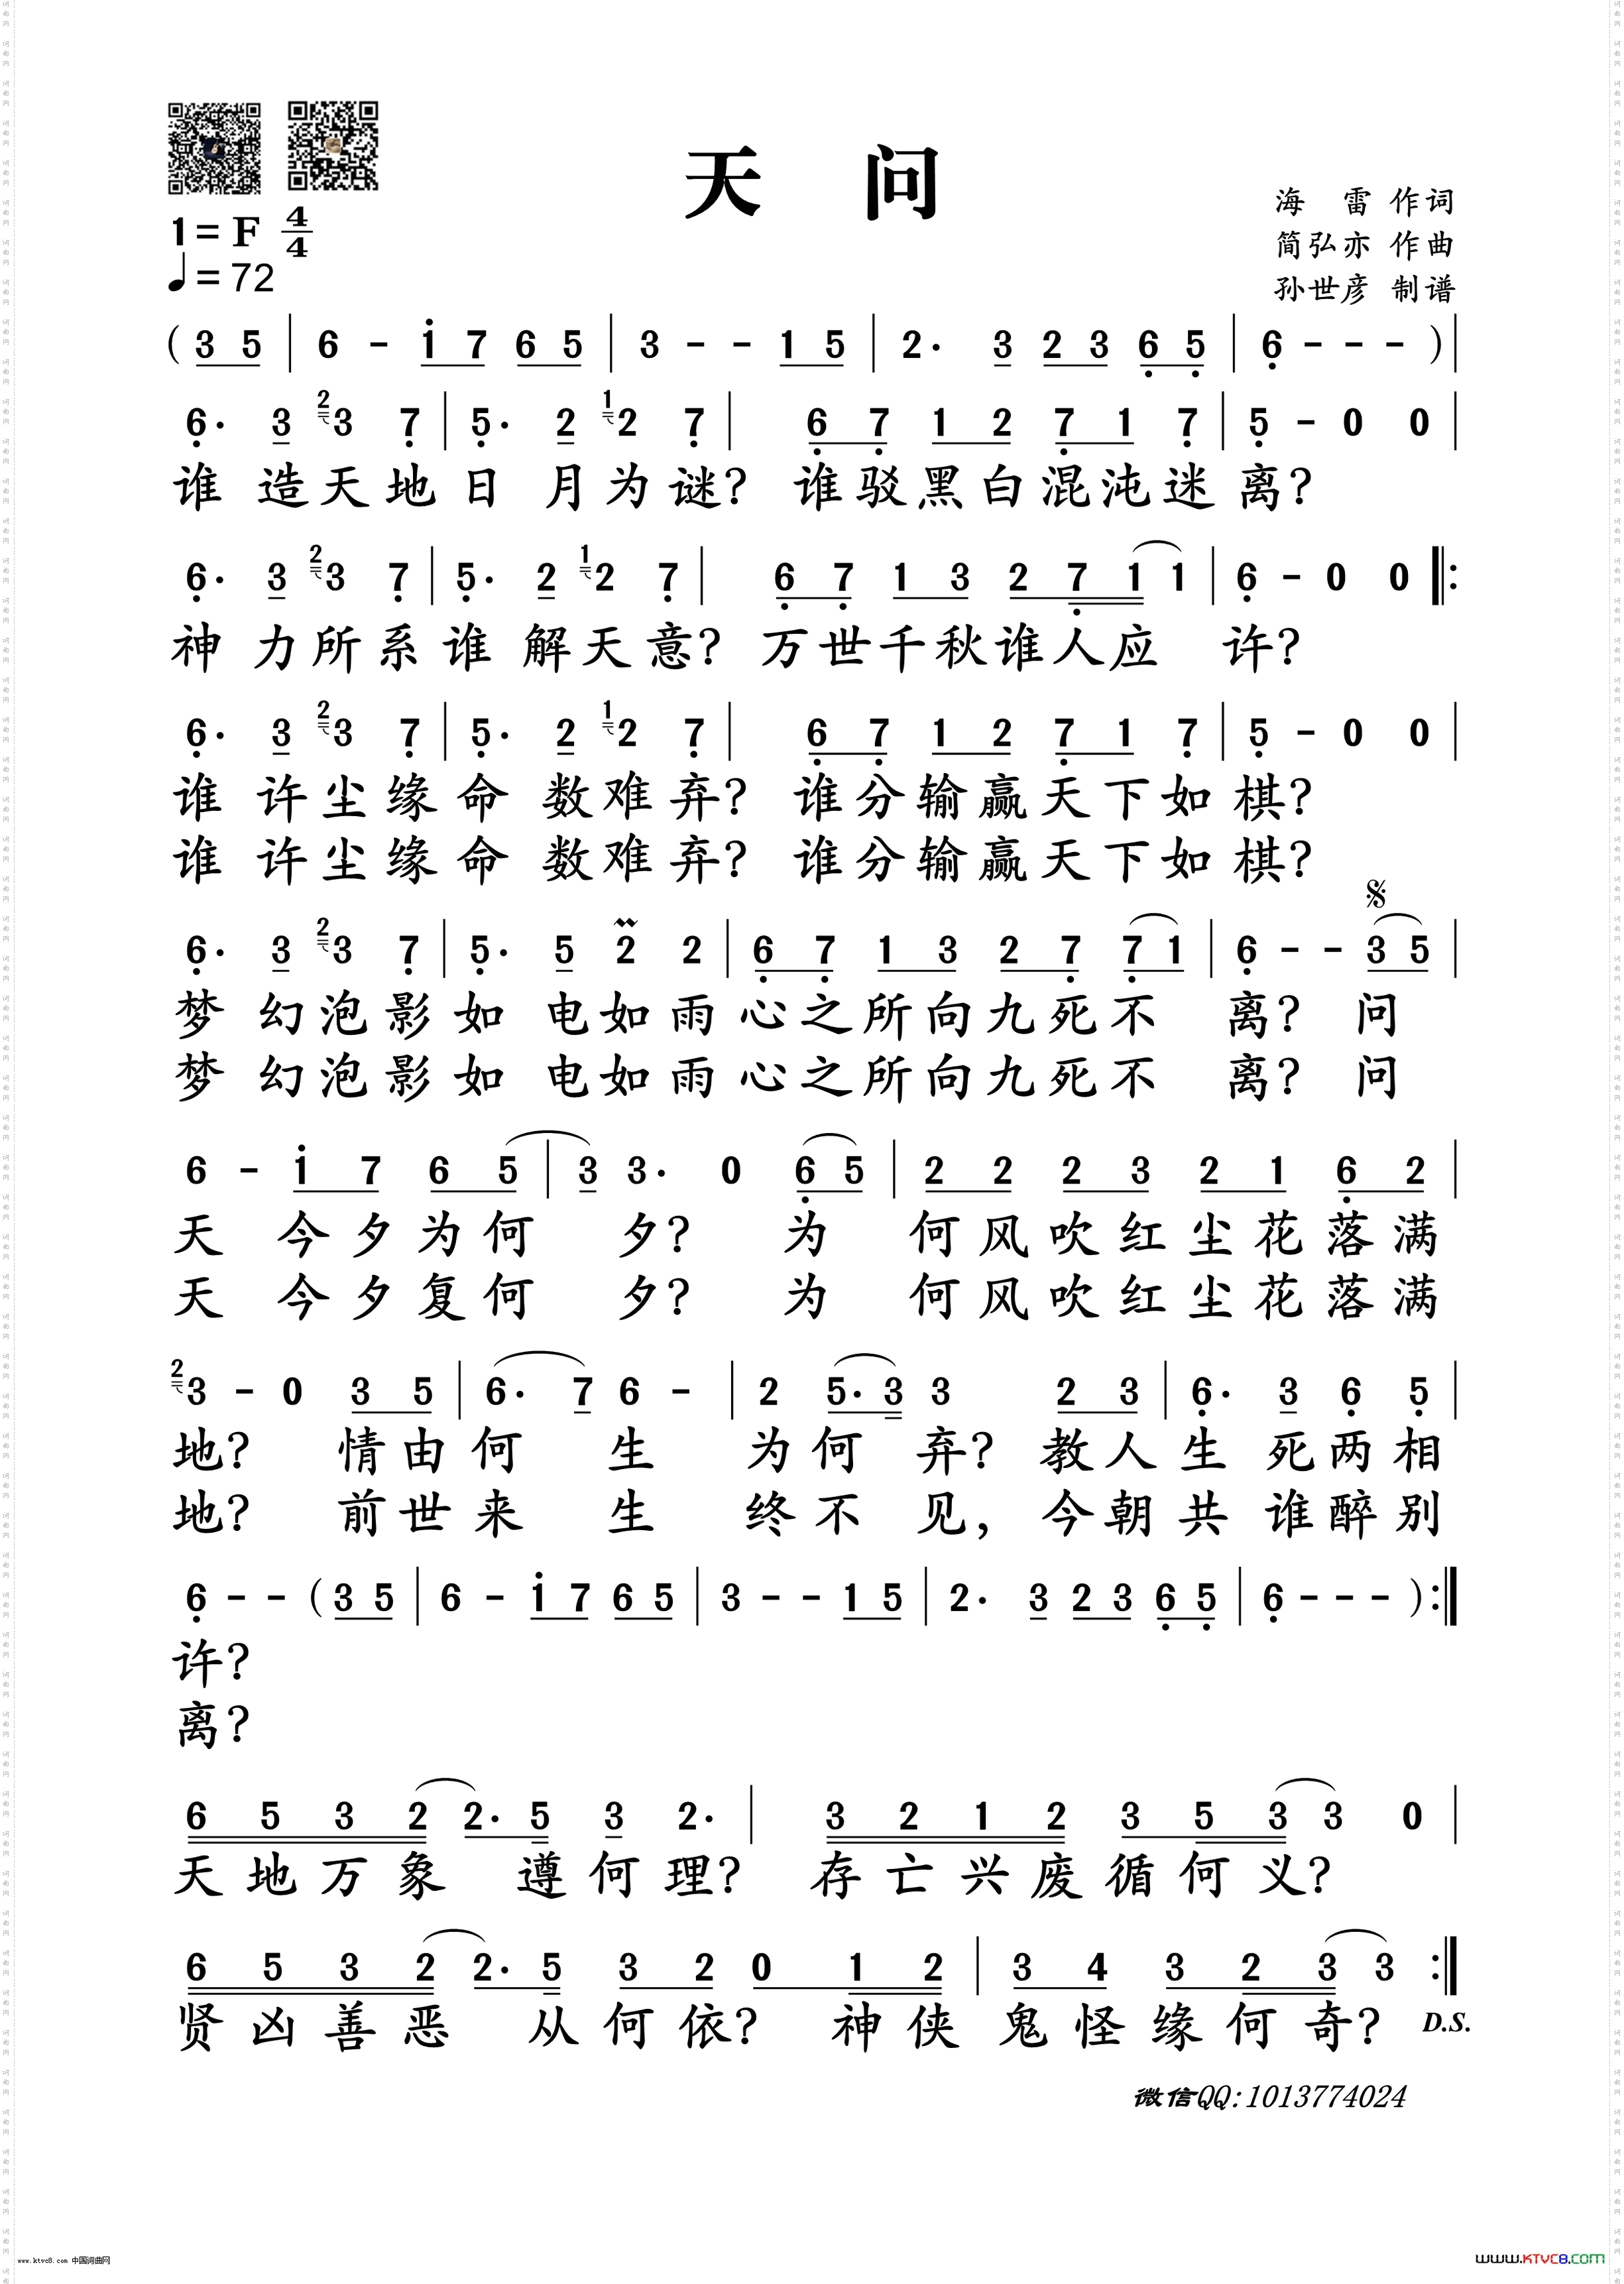 天 问
1= F 4/4
♩= 72
海 雷 作词
简弘亦 作曲
孙世彦 制谱
( 3 5 | 6 - i 7 6 5 | 3 - - 1 5 | 2. 3 2 3 6 5 | 6 - - - ) |
6. 3 2 3 7 | 5. 2 1 2 7 | 6 7 1 2 7 1 7 | 5 - 0 0 |
谁 造 天 地 日 月 为 谜? 谁 驳 黑 白 混 沌 迷 离?
6. 3 2 3 7 | 5. 2 1 2 7 | 6 7 1 3 2 7 1 1 | 6 - 0 0 ‖:
神 力 所 系 谁 解 天 意? 万 世 千 秋 谁 人 应 许?
6. 3 2 3 7 | 5. 2 1 2 7 | 6 7 1 2 7 1 7 | 5 - 0 0 |
谁 许 尘 缘 命 数 难 弃? 谁 分 输 赢 天 下 如 棋?
谁 许 尘 缘 命 数 难 弃? 谁 分 输 赢 天 下 如 棋?
6. 3 2 3 7 | 5. 5 2 2 | 6 7 1 3 2 7 7 1 | 6 - - 3 5 |
梦 幻 泡 影 如 电 如 雨 心 之 所 向 九 死 不 离? 问
梦 幻 泡 影 如 电 如 雨 心 之 所 向 九 死 不 离? 问
6 - i 7 6 5 | 3 3. 0 6 5 | 2 2 2 3 2 1 6 2 |
天 今 夕 为 何 夕? 为 何 风 吹 红 尘 花 落 满
天 今 夕 复 何 夕? 为 何 风 吹 红 尘 花 落 满
2 3 - 0 3 5 | 6. 7 6 - | 2 5. 3 3 2 3 | 6. 3 6 5 |
地? 情 由 何 生 为 何 弃? 教 人 生 死 两 相
地? 前 世 来 生 终 不 见, 今 朝 共 谁 醉 别
6 - - ( 3 5 | 6 - i 7 6 5 | 3 - - 1 5 | 2. 3 2 3 6 5 | 6 - - - ) :‖
许?
离?
6 5 3 2 2. 5 3 2. | 3 2 1 2 3 5 3 3 0 |
天 地 万 象 遵 何 理? 存 亡 兴 废 循 何 义?
6 5 3 2 2. 5 3 2 0 1 2 | 3 4 3 2 3 3 :‖
贤 凶 善 恶 从 何 依? 神 侠 鬼 怪 缘 何 奇? D.S.
微信QQ:1013774024
www.ktvc8.com 中国词曲网
www.KTVC8.com